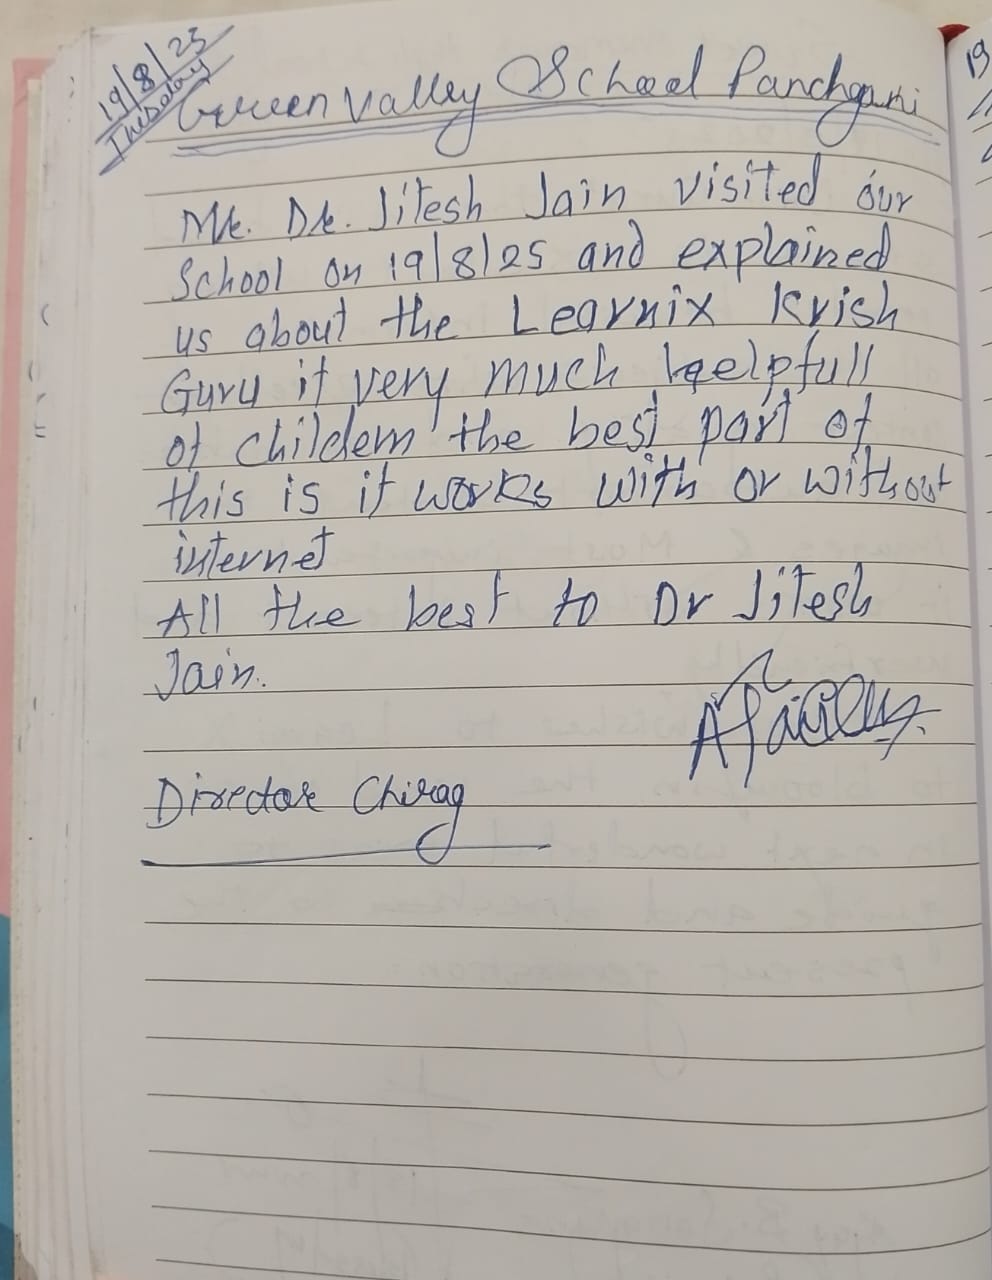 19/8/25
Tuesday
Green Valley School Panchgani
Mr. Dr. Jitesh Jain visited our
School on 19/8/25 and explained
us about the Learnix Krish
Guru it very much heelpfull
of childern the best part of
this is it works with or without
internet
All the best to Dr Jitesh
Jain.
Director Chirag
19